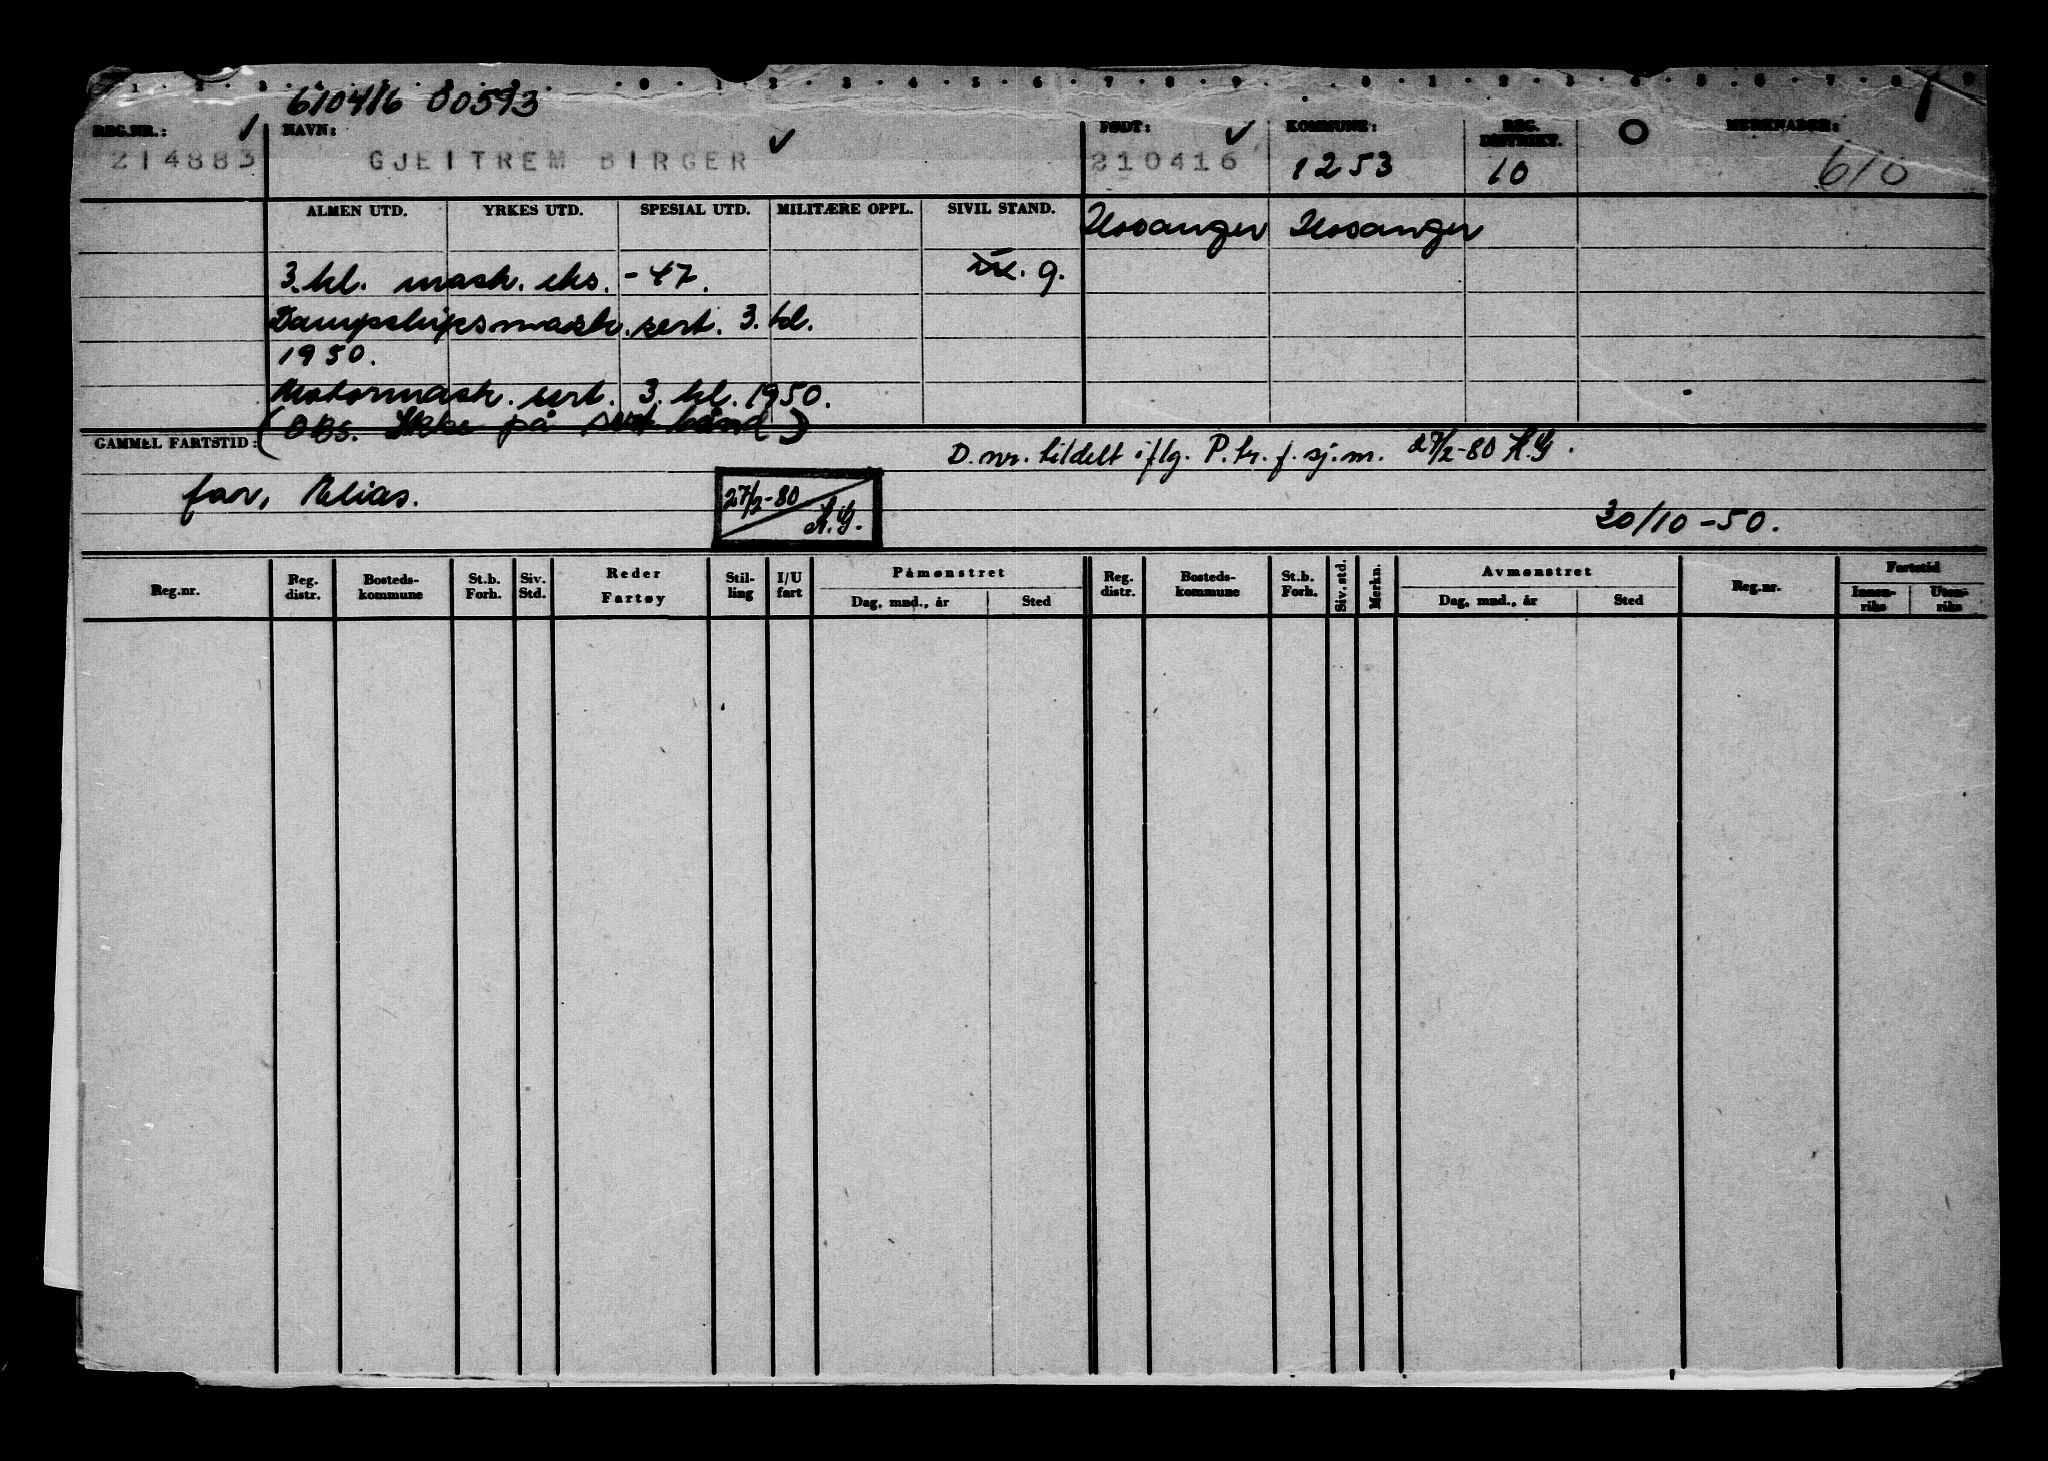 610416 00593
REG.NR.: NAVN: FØDT: KOMMUNE: REG. DISTRIKT. MERKNADER:
214883 GJEITREM BIRGER 210416 1253 10 610
ALMEN UTD. YRKES UTD. SPESIAL UTD. MILITÆRE OPPL. SIVIL STAND. Hosanger Hosanger
3. kl. mask. eks. - 47. g.
Dampskipsmask. sert. 3. kl.
1950.
Motormask. sert. 3. kl. 1950.
(OBS. Ikke på sert bånd)
GAMMEL FARTSTID: D.nr. tildelt iflg. P.tr. f. sj.m. 27/2-80 A.G.
far, Elias. 27/2-80 A.G.
30/10-50.
Reg.nr. Reg. distr. Bosteds-kommune St.b. Forh. Siv. Std. Reder Fartøy Stil-ling I/U fart Påmønstret Dag, mnd., år Sted Reg. distr. Bosteds-kommune St.b. Forh. Siv. std. Merkn. Avmønstret Dag, mnd., år Sted Reg.nr. Fartstid Innen-riks Uten-riks